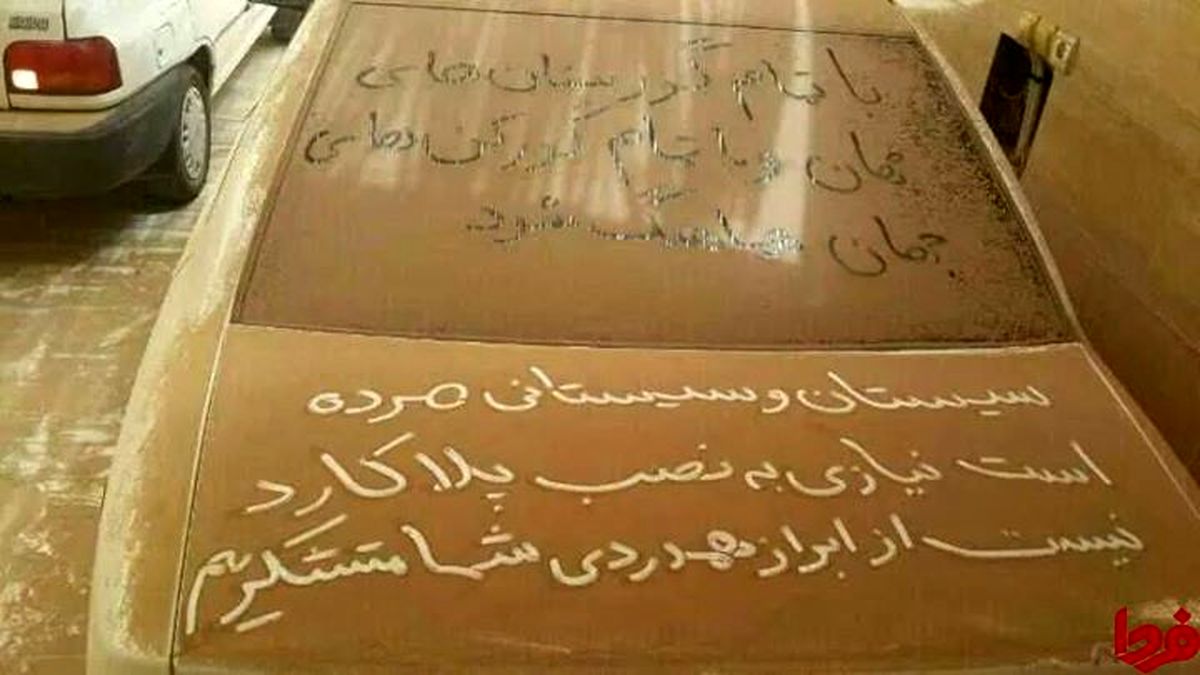 با تمام گورستان‌های
جهان و با تمام گورکن‌های
جهان هماهنگ شود
سیستان و سیستانی مرده
است نیازی به نصب پلاکارد
نیست از ابراز همدردی شما متشکریم
فردا